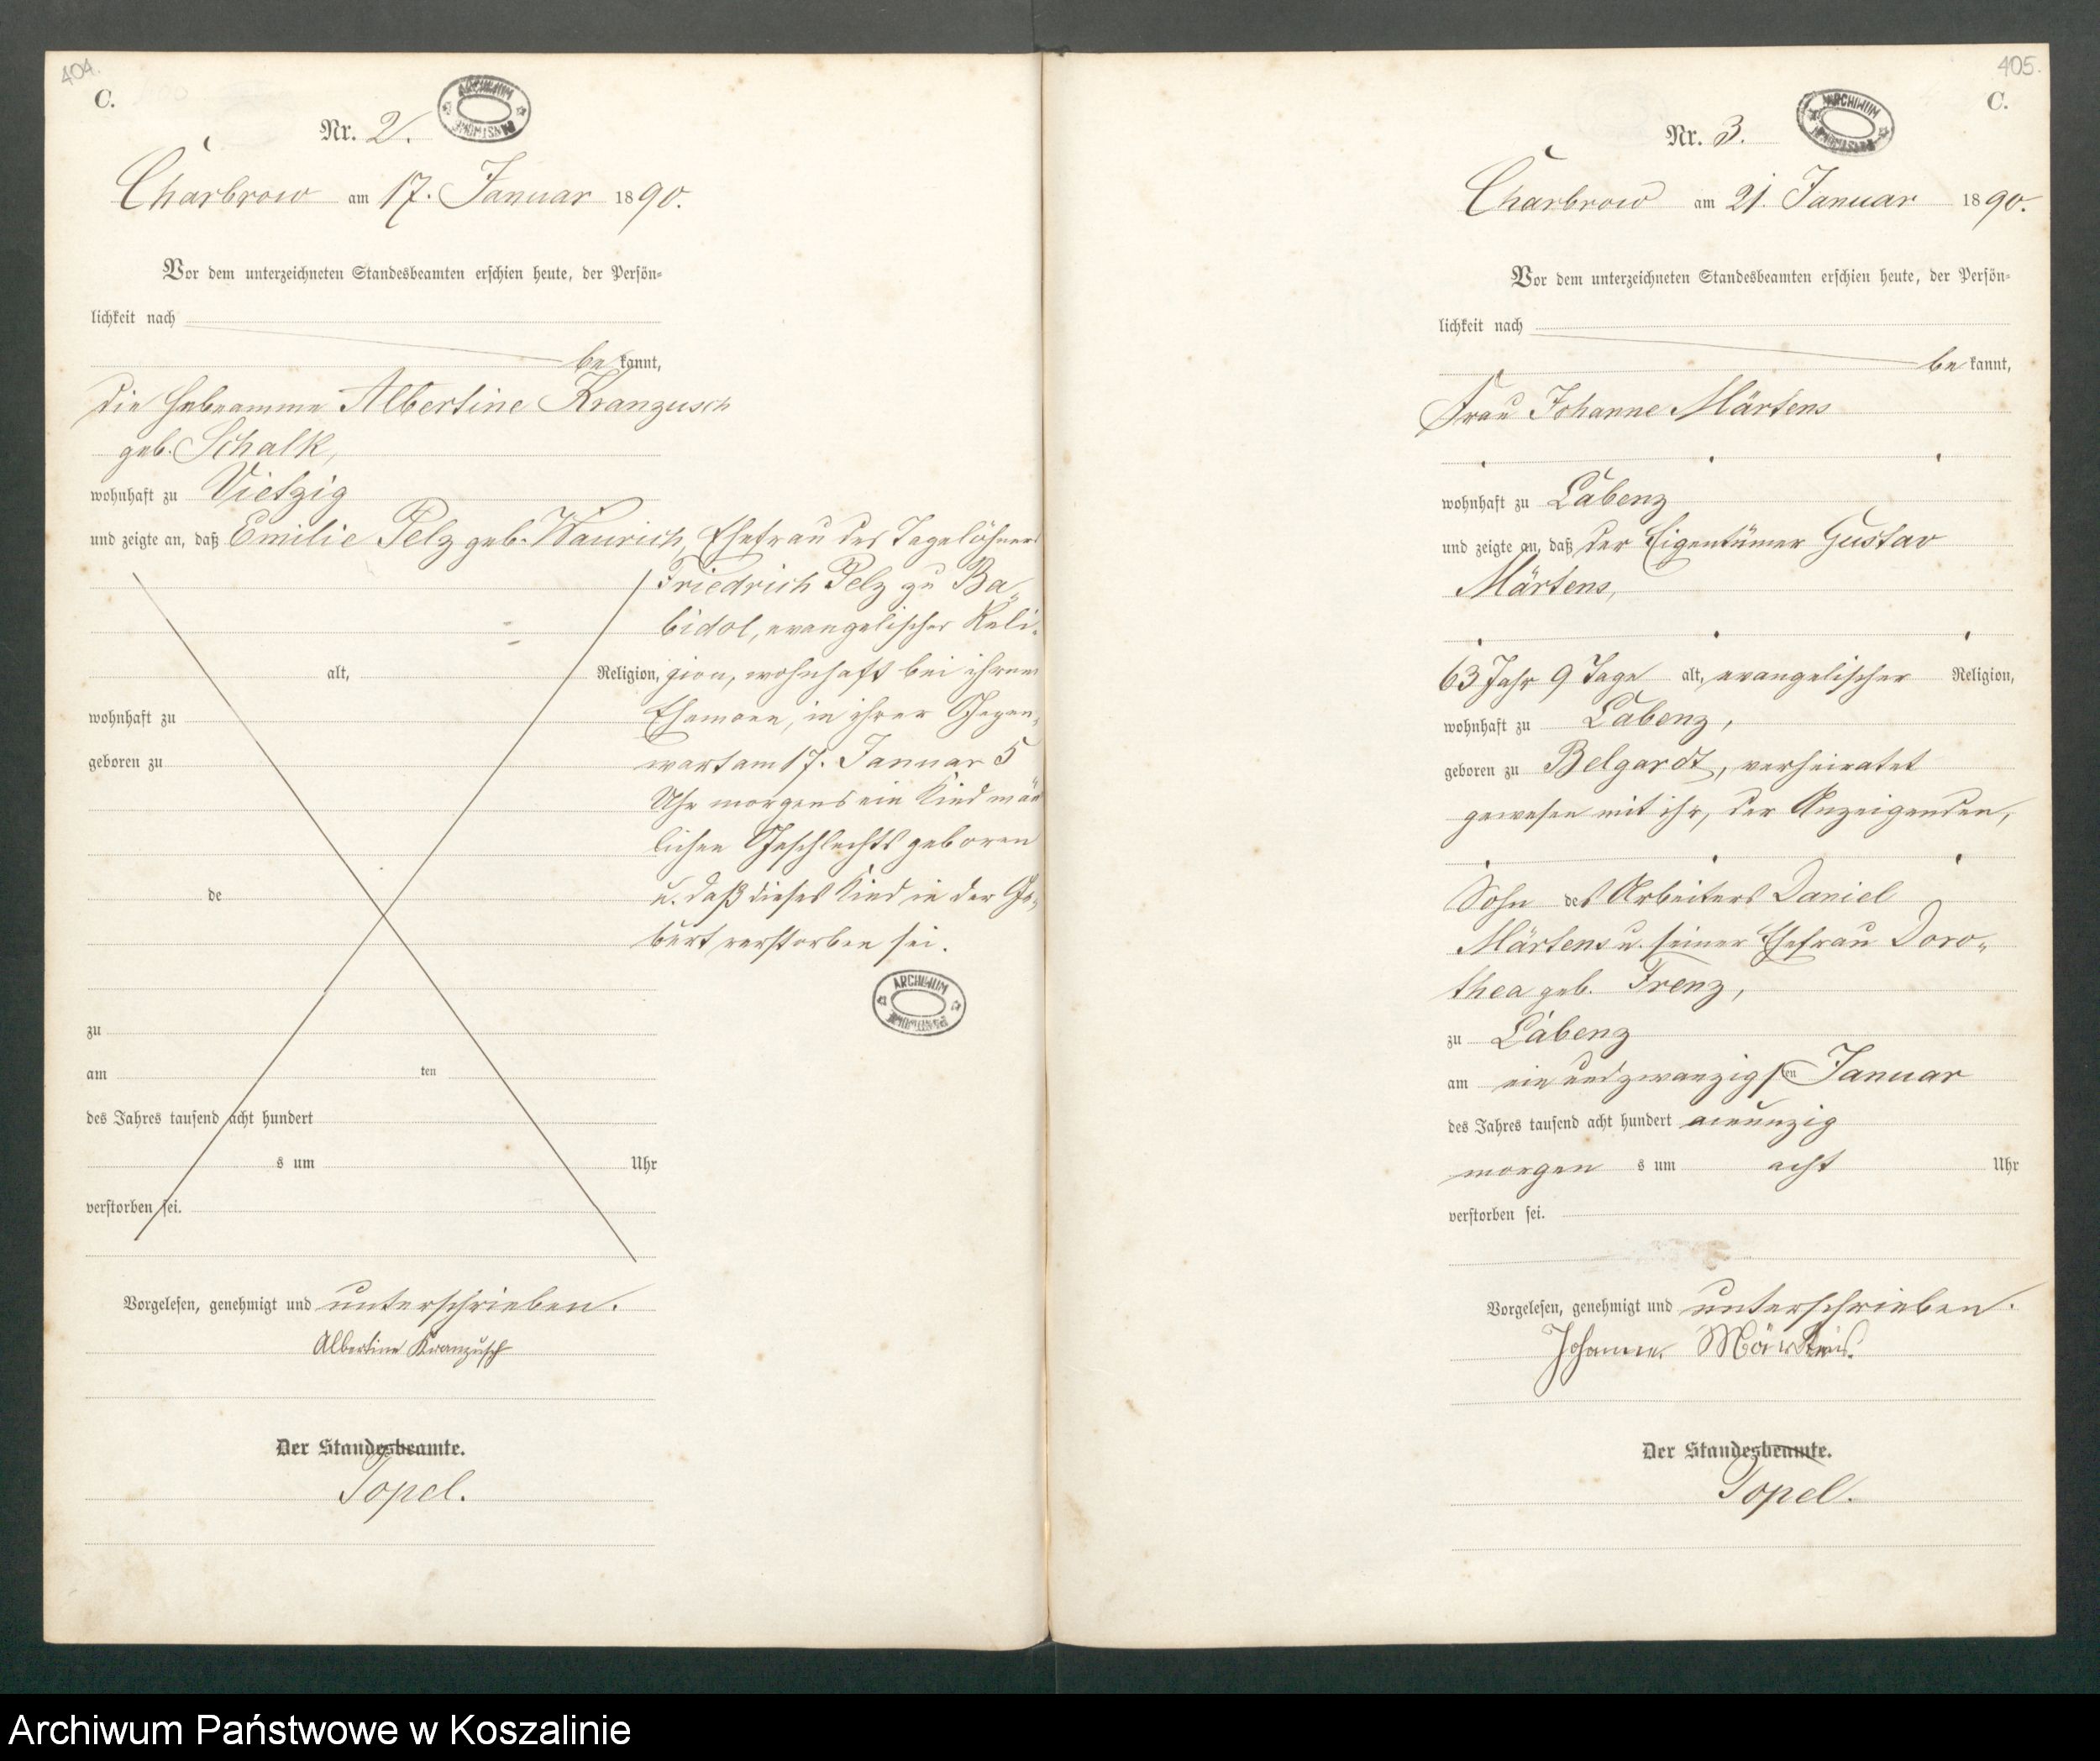 404.
C.
ARCHIWUM PAŃSTWOWE
Nr. 2.
Charbrow am 17. Januar 1890.
Vor dem unterzeichneten Standesbeamten erschien heute, der Persön-
lichkeit nach
be kannt,
die Hebeamme Albertine Kranzusch
geb. Schalk,
wohnhaft zu Vietzig
und zeigte an, daß Emilie Pelz geb. Waurich, Ehefrau des Tagelöhners
Friedrich Pelz zu Ba-
bidol, evangelischer Reli-
alt, Religion, gion, wohnhaft bei ihrem
wohnhaft zu Ehemann, in ihrer Gegen-
geboren zu wart am 17. Januar 5
Uhr morgens ein Kind männ
lichen Geschlechts geboren
de u. daß dieses Kind in der Ge-
burt verstorben sei.
ARCHIWUM PAŃSTWOWE
zu
am ten
des Jahres tausend acht hundert
s um Uhr
verstorben sei.
Vorgelesen, genehmigt und unterschrieben.
Albertine Kranzusch
Der Standesbeamte.
Topel.
405.
C.
ARCHIWUM PAŃSTWOWE
Nr. 3.
Charbrow am 21. Januar 1890.
Vor dem unterzeichneten Standesbeamten erschien heute, der Persön-
lichkeit nach
be kannt,
Frau Johanne Märtens
wohnhaft zu Labenz
und zeigte an, daß der Eigentümer Gustav
Märtens,
63 Jahr 9 Tage alt, evangelischer Religion,
wohnhaft zu Labenz,
geboren zu Belgardt, verheiratet
gewesen mit ihr, der Anzeigenden,
Sohn des Arbeiters Daniel
Märtens u. seiner Ehefrau Doro-
thea geb. Frenz,
zu Labenz
am ein und zwanzigsten Januar
des Jahres tausend acht hundert neunzig
morgen s um acht Uhr
verstorben sei.
Vorgelesen, genehmigt und unterschrieben.
Johanne Märtens.
Der Standesbeamte.
Topel.
Archiwum Państwowe w Koszalinie